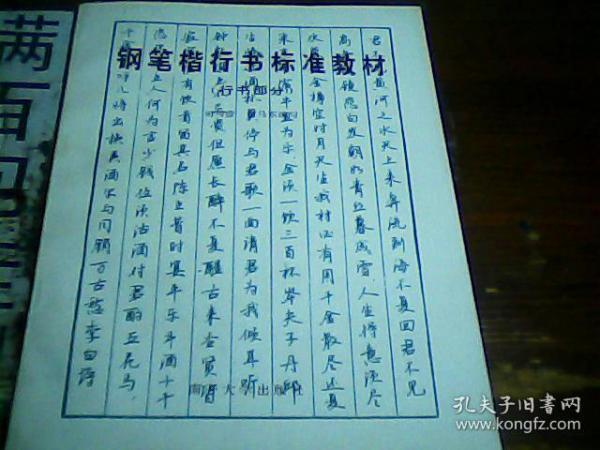 钢笔楷行书标准教材
(行书部分)
君不见黄河之水天上来奔流到海不复回君不见
高堂明镜悲白发朝如青丝暮成雪.人生得意须尽
欢莫使金樽空对月天生我材必有用千金散尽还复
来烹羊宰牛且为乐会须一饮三百杯岑夫子丹邱
生将进酒杯莫停与君歌一曲请君为我倾耳听
钟鼓馔玉不足贵但愿长醉不复醒古来圣贤皆
寂寞惟有饮者留其名陈王昔时宴平乐斗酒十千
恣欢谑主人何为言少钱径须沽酒付君酌五花马.
千金裘呼儿将出换美酒尔与同销万古愁李白诗
大学出版社
孔夫子旧书网
www.kongfz.com